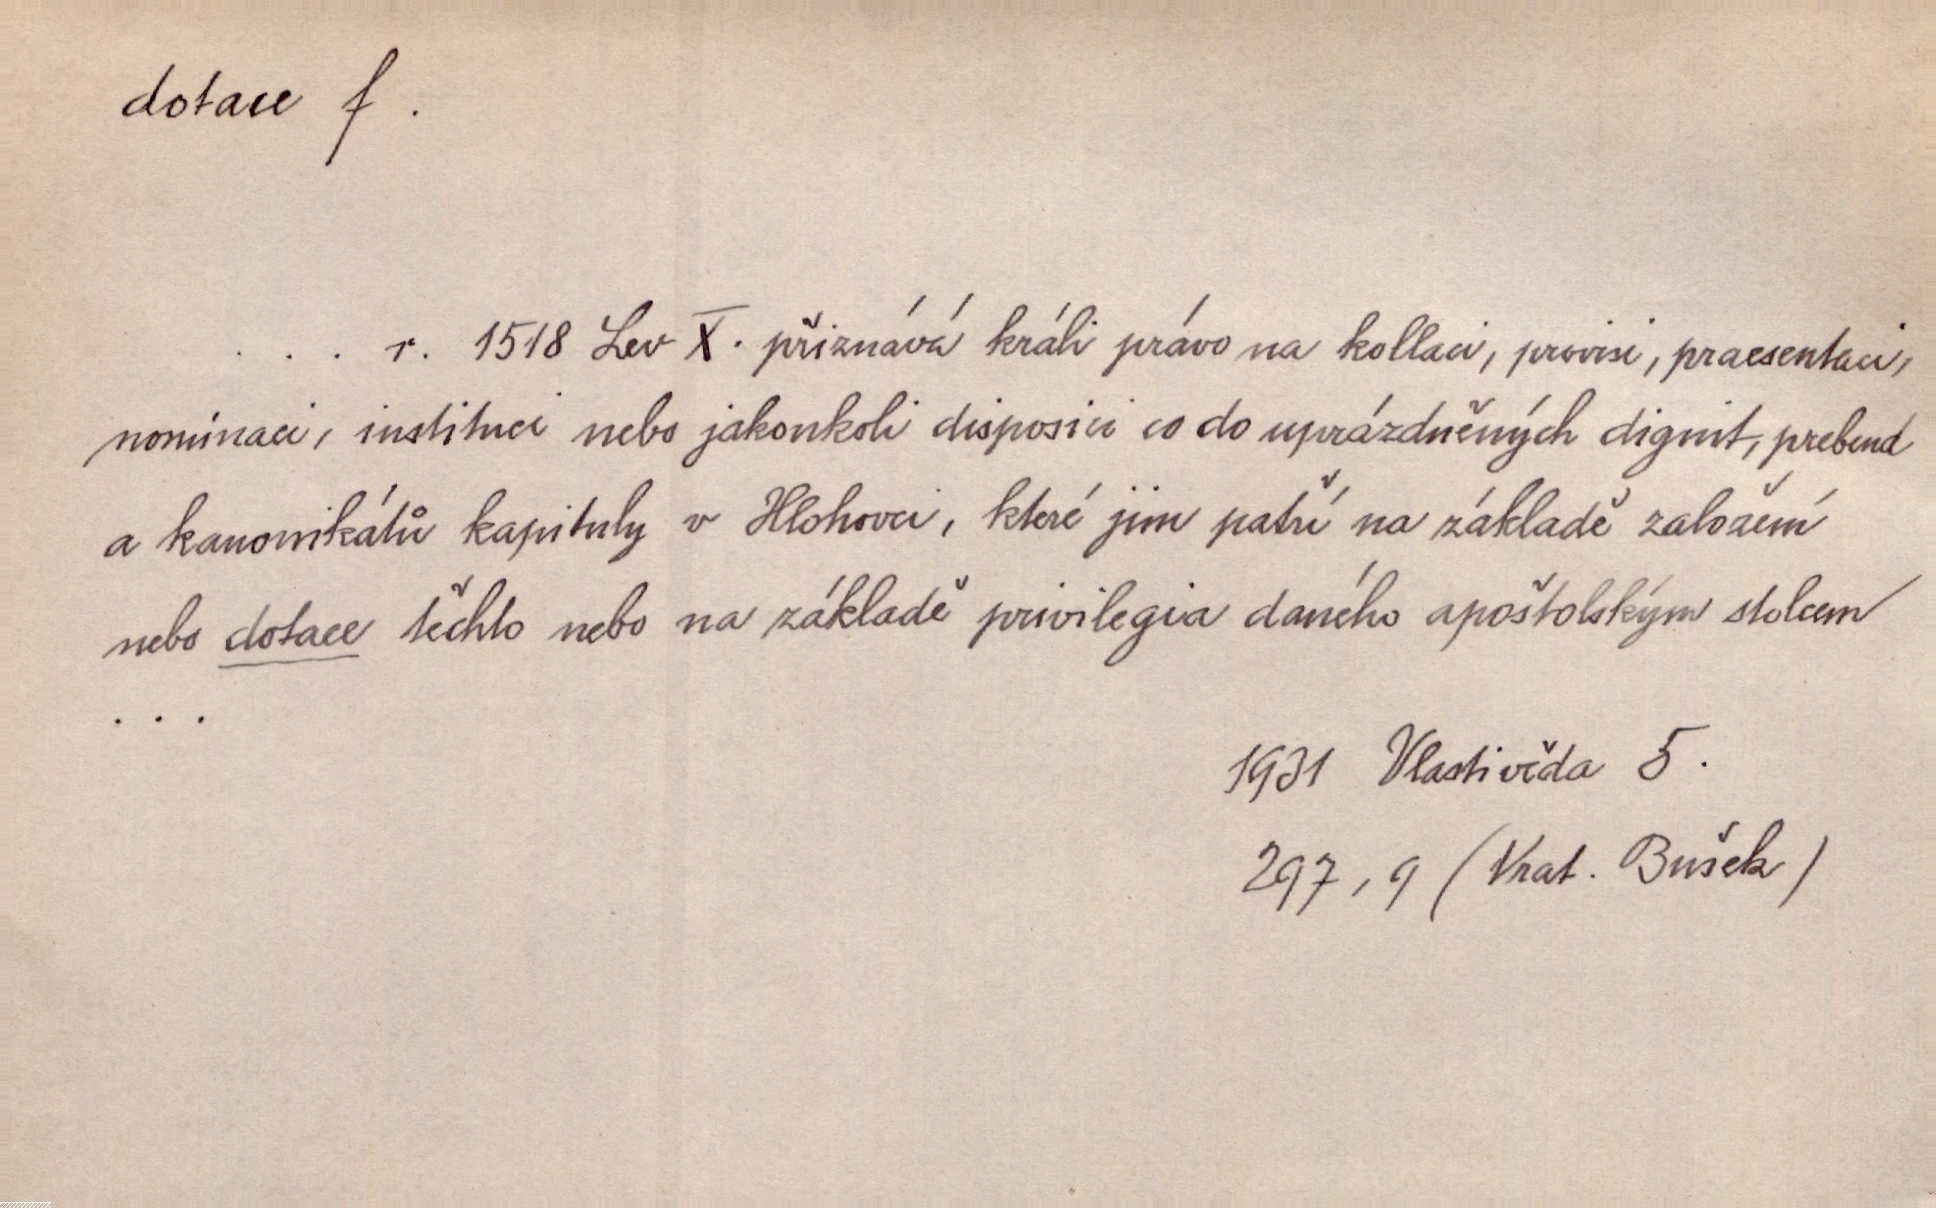 dotace f.
. . . r. 1518 Lev X. přiznává králi právo na kollaci, provisi, praesentaci,
nominaci, instituci nebo jakoukoli disposici co do uprázdněných dignit, prebend
a kanonikátů kapituly v Hlohovci, které jim patří na základě založení
nebo dotace těchto nebo na základě privilegia daného apoštolským stolcem
. . .
1931 Vlastivěda 5.
297, 9 (Vrat. Bušek)